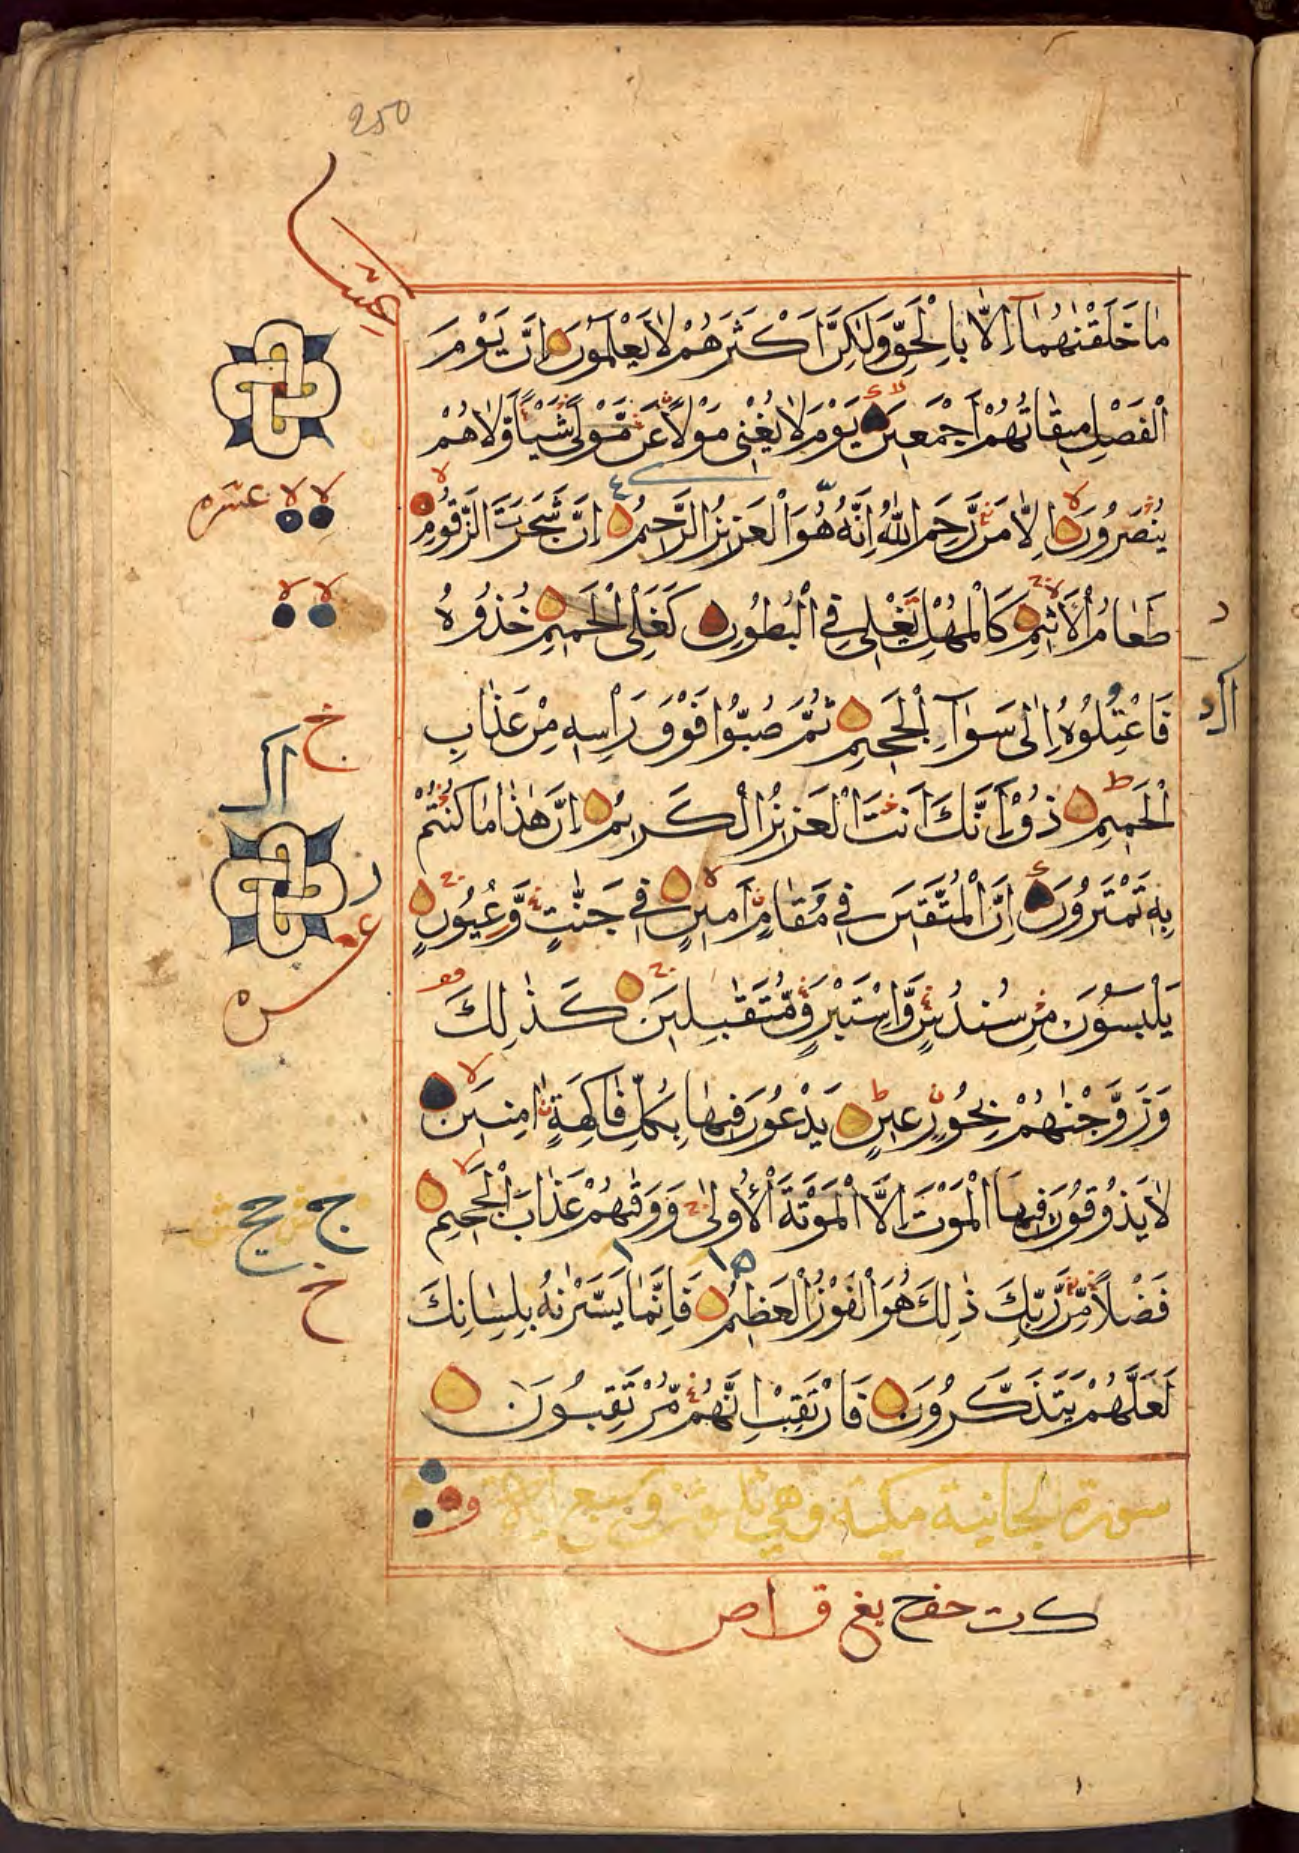 250
مَا خَلَقْنٰهُمَآ اِلَّا بِالْحَقِّ وَلٰكِنَّ اَكْثَرَهُمْ لَا يَعْلَمُوْنَ اِنَّ يَوْمَ
الْفَصْلِ مِيْقَاتُهُمْ اَجْمَعِيْنَ يَوْمَ لَا يُغْنِيْ مَوْلًا عَنْ مَّوْلًى شَيْـًٔا وَّلَا هُمْ
يُنْصَرُوْنَ اِلَّا مَنْ رَّحِمَ اللّٰهُ اِنَّهٗ هُوَ الْعَزِيْزُ الرَّحِيْمُ اِنَّ شَجَرَتَ الزَّقُّوْمِ
طَعَامُ الْاَثِيْمِ كَالْمُهْلِ تَغْلِيْ فِي الْبُطُوْنِ كَغَلْيِ الْحَمِيْمِ خُذُوْهُ
فَاعْتِلُوْهُ اِلٰى سَوَآءِ الْجَحِيْمِ ثُمَّ صُبُّوْا فَوْقَ رَاْسِهٖ مِنْ عَذَابِ
الْحَمِيْمِ ذُقْ اِنَّكَ اَنْتَ الْعَزِيْزُ الْكَرِيْمُ اِنَّ هٰذَا مَا كُنْتُمْ
بِهٖ تَمْتَرُوْنَ اِنَّ الْمُتَّقِيْنَ فِيْ مُقَامٍ اَمِيْنٍ فِيْ جَنّٰتٍ وَّعُيُوْنٍ
يَلْبَسُوْنَ مِنْ سُنْدُسٍ وَّاِسْتَبْرَقٍ مُّتَقٰبِلِيْنَ كَذٰلِكَ
وَزَوَّجْنٰهُمْ بِحُوْرٍ عِيْنٍ يَدْعُوْنَ فِيْهَا بِكُلِّ فَاكِهَةٍ اٰمِنِيْنَ
لَا يَذُوْقُوْنَ فِيْهَا الْمَوْتَ اِلَّا الْمَوْتَةَ الْاُوْلٰى وَوَقٰىهُمْ عَذَابَ الْجَحِيْمِ
فَضْلًا مِّنْ رَّبِّكَ ذٰلِكَ هُوَ الْفَوْزُ الْعَظِيْمُ فَاِنَّمَا يَسَّرْنٰهُ بِلِسَانِكَ
لَعَلَّهُمْ يَتَذَكَّرُوْنَ فَارْتَقِبْ اِنَّهُمْ مُّرْتَقِبُوْنَ
سورة الجاثية مكية وهي ثلثون وسبع اية
لا لا عشره
لا لا
خ
ج حج
خ